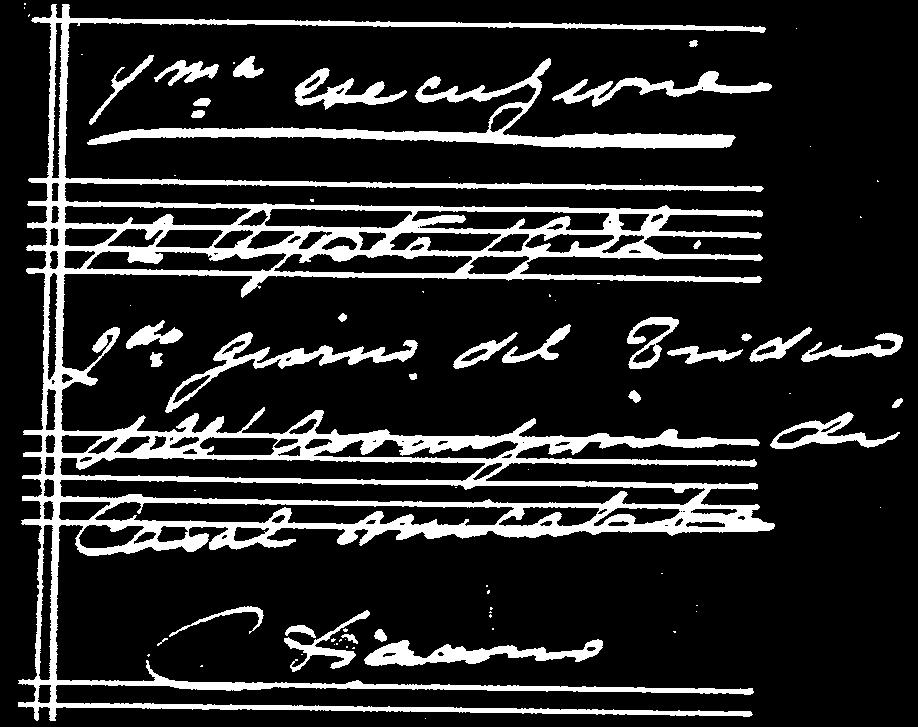 1ma esecuzione
12 Agosto 1922.
2do giorno del Triduo
dell' Assunzione di
Casal Micabiba
C Diacono